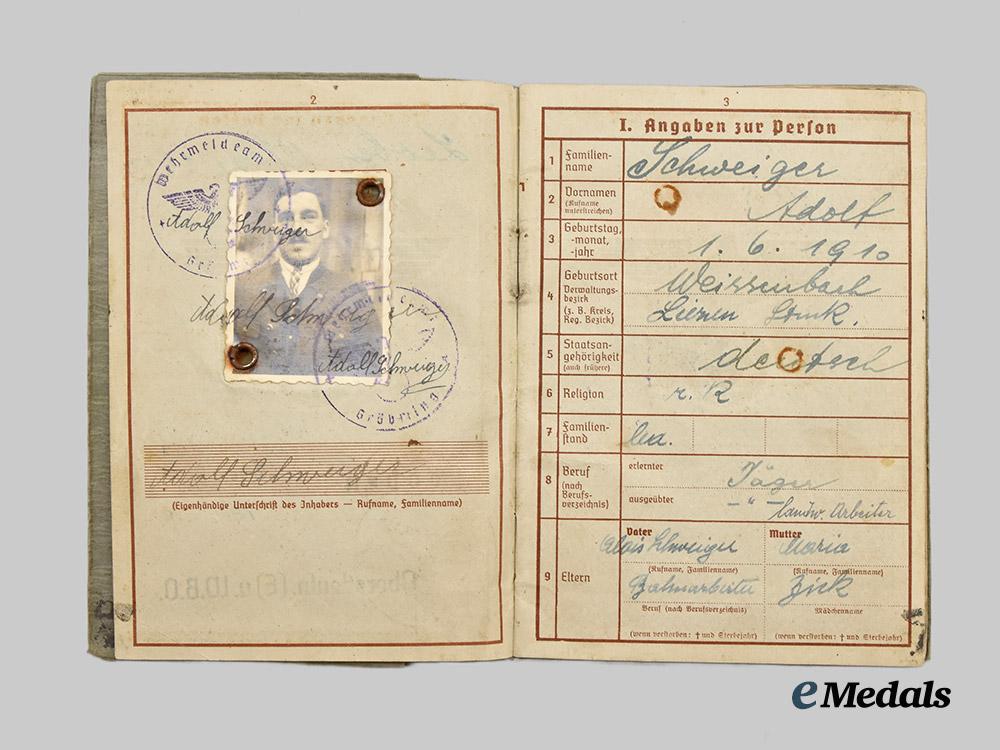 2
Wehrmeldeamt
Adolf Schweiger
Gröbming
Adolf Schweiger
Adolf Schweiger
Gröbming
Adolf Schweiger
(Eigenhändige Unterschrift des Inhabers — Rufname, Familienname)
3
I. Angaben zur Person
1 Familien-
name
Schweiger
2 Vornamen
(Rufname
unterstreichen)
Adolf
3 Geburtstag,
-monat,
-jahr
1. 6. 1910
4 Geburtsort
Verwaltungs-
bezirk
(z. B. Kreis,
Reg. Bezirk)
Weissenbach
Liezen Stmk.
5 Staatsan-
gehörigkeit
(auch frühere)
deutsch
6 Religion
r. K
7 Familien-
stand
led.
8 Beruf
(nach
Berufs-
verzeichnis)
erlernter
Jäger
ausgeübter
— " — landw. Arbeiter
9 Eltern
Vater
Mutter
Alois Schweiger
Maria
(Rufname, Familienname)
(Rufname, Familienname)
Bahnarbeiter
Zick
Beruf (nach Berufsverzeichnis)
Mädchenname
(wenn verstorben: † und Sterbejahr)
(wenn verstorben: † und Sterbejahr)
eMedals